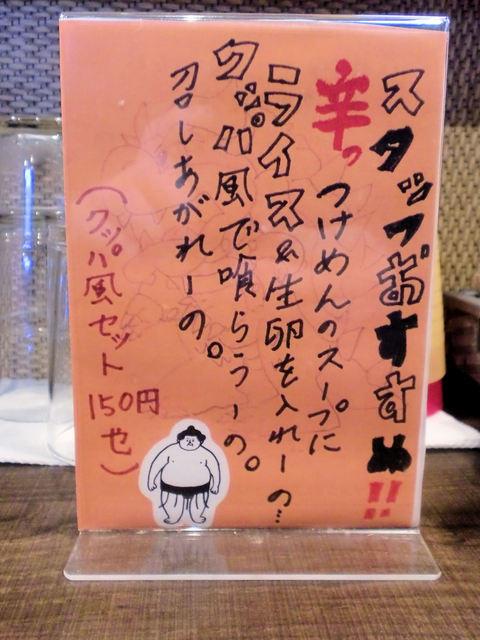 スタッフおすすめ!!
辛っ
つけめんのスープに
ライス&生卵を入れーの…
クッパ風で喰らうーの。
召しあがれーの。
(クッパ風セット
150円
也)